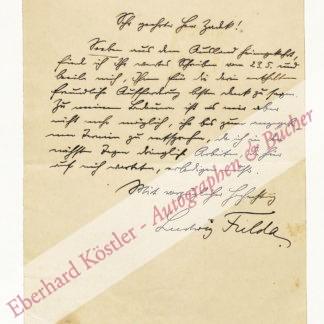 Sehr geehrter Herr Zadek!
Soeben aus dem Ausland heimgekehrt,
finde ich Ihr wertes Schreiben vom 29.5. und
beeile mich, Ihnen für die darin enthaltene
freundliche Aufforderung besten Dank zu sagen.
Zu meinem Bedauern ist es mir aber
nicht mehr möglich, ihr bis zum
Termin zu entsprechen, da ich in den
nächsten Tagen dringliche Arbeiten, die hier
auf mich warten, erledigen muss.
Mit vorzüglicher Hochachtung
Ludwig Fulda.
Eberhard Köstler - Autographen & Bücher